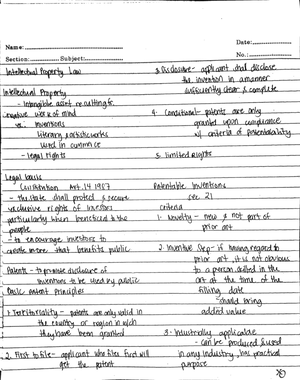 Name:
Section: Subject:
Date:
No.:
Intellectual Property Law
Intellectual Property
- Intangible asset resulting fr.
creative work of mind
vs. inventions
Literary, artistic works
used in commerce
- legal rights
Legal basis
Constitution Art. 14 1987
- the state shall protect & secure
exclusive rights of investors
particularly when beneficial to the
people
- to encourage investors to
create more that benefits public
Patents - to promote disclosure of
inventions to be used by public
Basic patent principles
1. Territoriality - patents are only valid in
the country or region in which
they have been granted
2. First to file - applicant who files first will
get the patent
3. Disclosure - applicant shall disclose
the invention in a manner
sufficiently clear & complete
4. Conditional - patents are only
granted upon compliance
w/ criteria of patentability
5. limited rights
Patentable Inventions
sec. 21
criteria
1. Novelty - new & not part of
prior art
2. Inventive Step - if having regard to
prior art, it is not obvious
to a person skilled in the
art at the time of the
filing date
- should bring
added value
3. Industrially applicable
- can be produced & used
in any industry, has practical
purpose